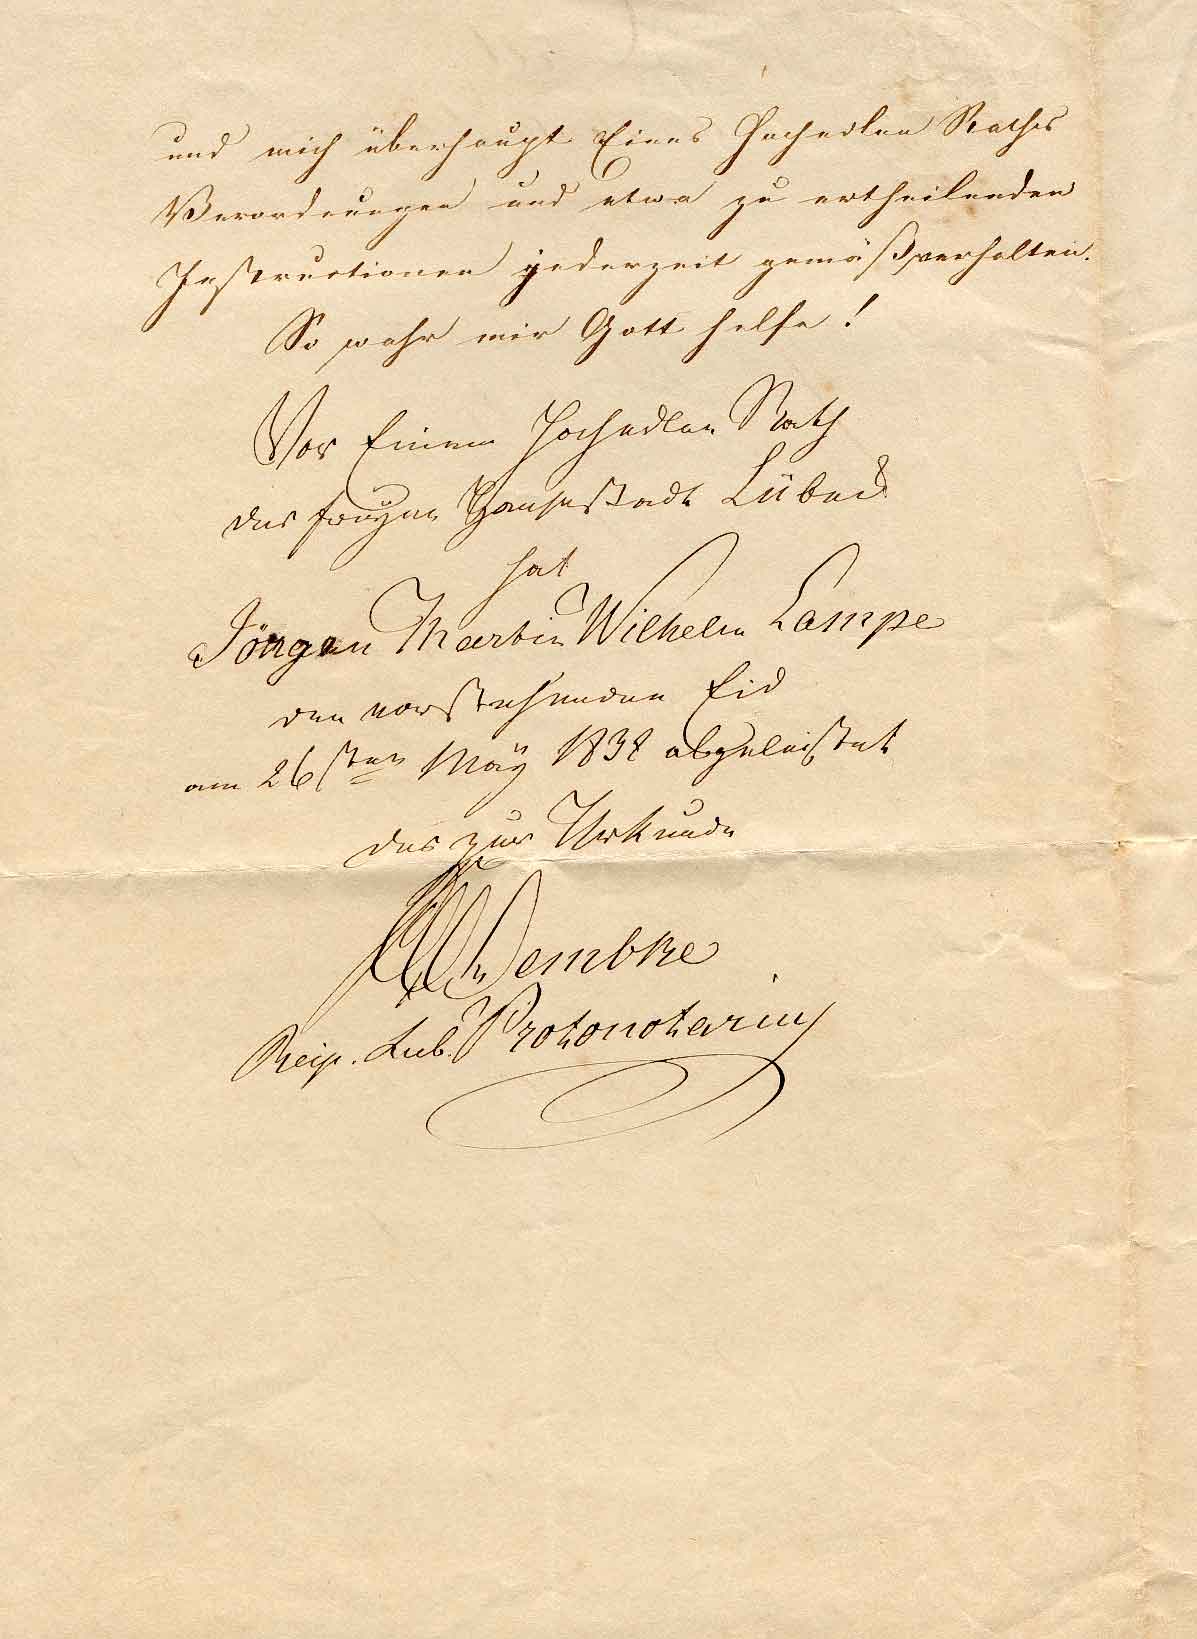 und mich überhaupt Eines Hochedlen Rathes
Verordnungen und etwa zu ertheilenden
Instructionen jederzeit gemäß verhalten.
So wahr mir Gott helfe!
Vor Einem Hochedlen Rath
der freyen Hansestadt Lübeck
hat
Jürgen Martin Wilhelm Lampe
den vorstehenden Eid
am 26sten May 1838 abgeleistet
des zur Urkunde
Dembke
Reip. Lub. Protonotarius